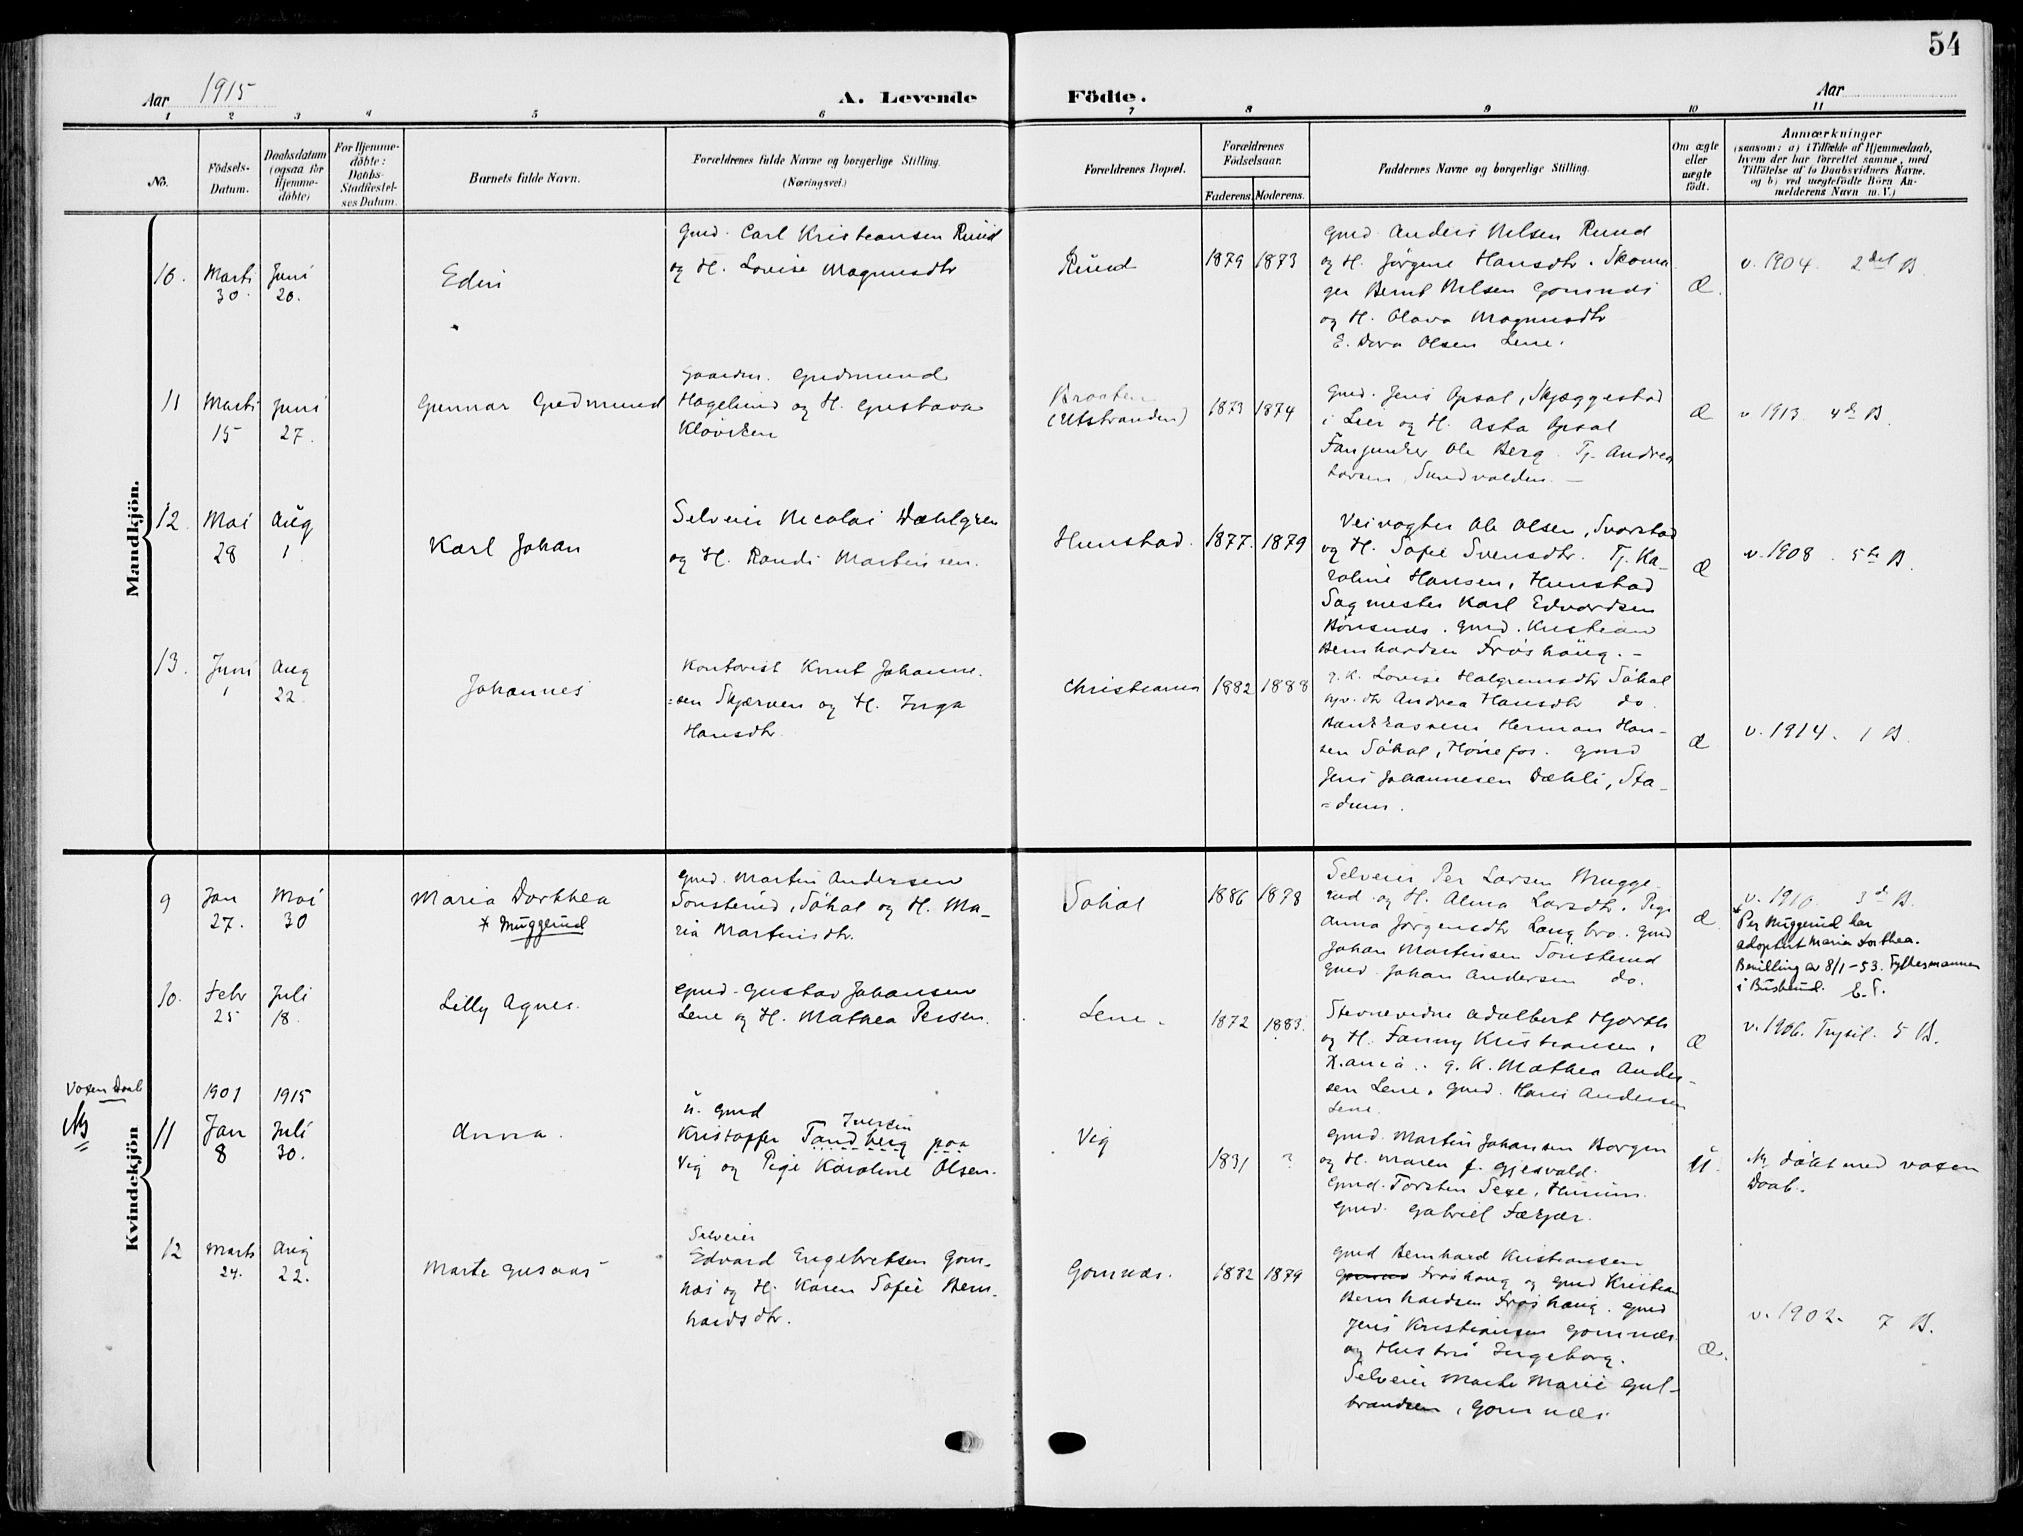 54
Aar 1915
A. Levende
Födte.
Aar
1 2 3 4 5 6 7 8 9 10 11
No.
Födsels-
Datum.
Daabsdatum
(ogsaa for
Hjemme-
döbte)
For Hjemme-
döbte:
Daabs-
Stadfæstel-
ses Datum.
Barnets fulde Navn.
Forældrenes fulde Navne og borgerlige Stilling.
(Næringsvei.)
Forældrenes Bopæl.
Forældrenes
Födselsaar.
Faderens.
Moderens.
Faddernes Navne og borgerlige Stilling.
Om ægte
eller
uægte
födt.
Anmærkninger
(saasom: a) i Tilfælde af Hjemmedaab,
hvem der har forrettet samme, med
Tilföielse af to Daabsvidners Navne.
og b) ved uægtefödte Börn An-
melderens Navn m. V.)
Mandkjön.
10.
Marts
30.
Juni
20.
Edin
Gmd. Carl Kristiansen Rund
og H. Lovise Magnusdtr
Rund
1879
1873
Gmd. Anders Nilsen Rund
og H. Jørgine Hansdtr. Skoma
ger Bernt Nilsen Gomnæs
og H. Olava Magnusdtr
E. Dora Olsen Lene.
Æ.
v. 1904. 2det B.
11
Marts
15
Juni
27.
Gunnar Gudmund
Gaardm. Gudmund
Hagelund og H. Gustava
Kloviken
Braaten
(Utstranden)
1873
1874
Gmd. Jens Opsal, Skjæggestad
i Lier og H. Asta Opsal
Fanjunker Ole Berg. Tj. Andrea
Larsen, Sundvolden. -
Æ
v 1913 4de B.
12.
Mai
28
Aug
1.
Karl Johan
Selveier Nicolai Dæhlgren
og H. Randi Martinsen.
Hunstad.
1877.
1879
Veivogter Ole Olsen, Svarstad
og H. Sofie Svensdtr. Tj. Ka-
roline Hansen, Hunstad
Sagmester Karl Edvardsen
Bönsnæs. Gmd. Kristian
Bernhardsen Fröshaug. -
Æ
v. 1908. 5te B.
13.
Juni
1
Aug
22.
Johannes
Kontorist Knut Johanne-
=sen Skjærven og H. Inga
Hansdtr.
Christiania
1882
1888
g. K. Lovise Halgrimsdtr Søhol
gv. dtr Andrea Hansdtr do.
Bankkasserer Herman Han-
sen Søhol, Hönefos. Gmd
Jens Johannesen Dæhli, Sta-
=dum.
Æ
v. 1914. 1 B.
Kvindekjön
9
Jan
27.
Mai
30
Maria Dorthea
* Muggerud
Gmd. Martin Andersen
Sonsterud, Søhol og H. Ma-
ria Martinsdtr.
Søhol
1886
1878
Selveier Per Larsen Mugge
rud og H. Alma Larsdtr. Pige
Anna Jørgensdtr Langbro. Gmd
Johan Martinsen Sonsterud
Gmd. Johan Andersen do.
Æ.
v. 1910. 3d B.
* Per Muggerud har
adoptert Maria Dorthea.
Bevilling av 8/1-53. Fylkesmannen
i Buskerud. E. T.
10.
Febr
25
Juli
18.
Lilly Agnes.
Gmd. Gustav Johansen
Lene og H. Mathea Persen.
Lene.
1872
1883.
Stevnevidne Adalbert Hjorth
og H. Fanny Kristiansen,
X.ania. g. K. Mathea Ander-
sen Lene. Gmd. Hans Andersen
Lene.
Æ
v. 1906. Trysil. 5 B.
Voxen Daab
NB
11
1901
Jan
8
1915
Juli
30.
Anna.
u. Gmd
Iversen
Kristoffer Tandberg paa
Vig og Pige Karoline Olsen.
Vig
1831
?
Gmd. Martin Johansen Borgen
og H. Maren f. Gjesvald.
Gmd. Torsten Sexe, Hurum.
Gmd. Gabriel Færgær.
U.
NB döbt med voxen
Daab.
12
Marts
24.
Aug
22.
Marte Gusaas
Selveier
Edvard Engebretsen Gom-
næs og H. Karen Sofie Bern-
hardsdtr.
Gomnæs.
1882
1879
Gmd Bernhard Kristiansen
Gomnæs Fröshaug og Gmd Kristian
Bernhardsen Fröshaug. Gmd
Jens Kristiansen Gomnæs
og Hustru Ingeborg.
Selveier Marte Marie Gul-
brandsen, Gomnæs.
Æ.
v. 1902. 7 B.